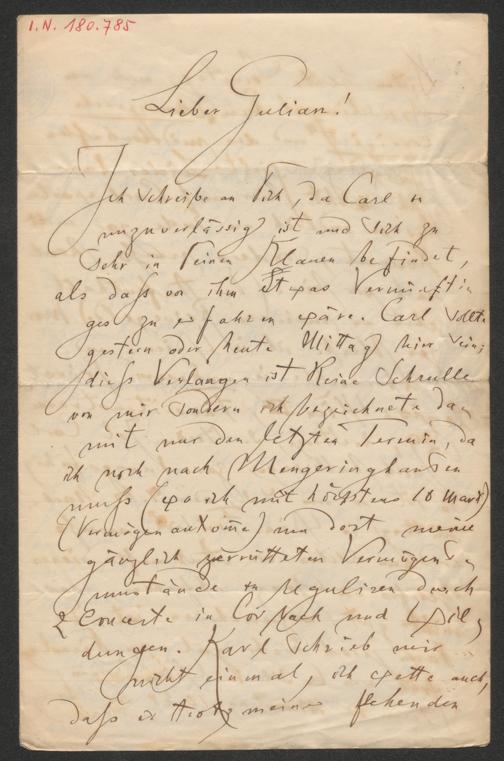 I.N. 180.785
Lieber Julian!
Ich schreibe an Dich, da Carl
unzuverlässig ist und sich zu
sehr in Deinen Klauen befindet,
als daß von ihm etwas Vernünfti
ges zu erfahren wäre. Carl sollte
gestern oder heute Mittag hier sein;
dieß Verlangen ist keine Schrulle
von mir sondern ich bezeichnete da
mit nur den letzten Termin, da
ich noch nach Mengeringhausen
muß (wo ich mit höchstens 10 Mark)
(Vermögen ankomme) um dort meine
gänzlich zerrütteten Vermögens
umstände zu reguliren durch
2 Concerte in Corbach und Wil
dungen. Karl schrieb mir
nicht einmal, ich wette auch,
daß er trotz meiner flehenden